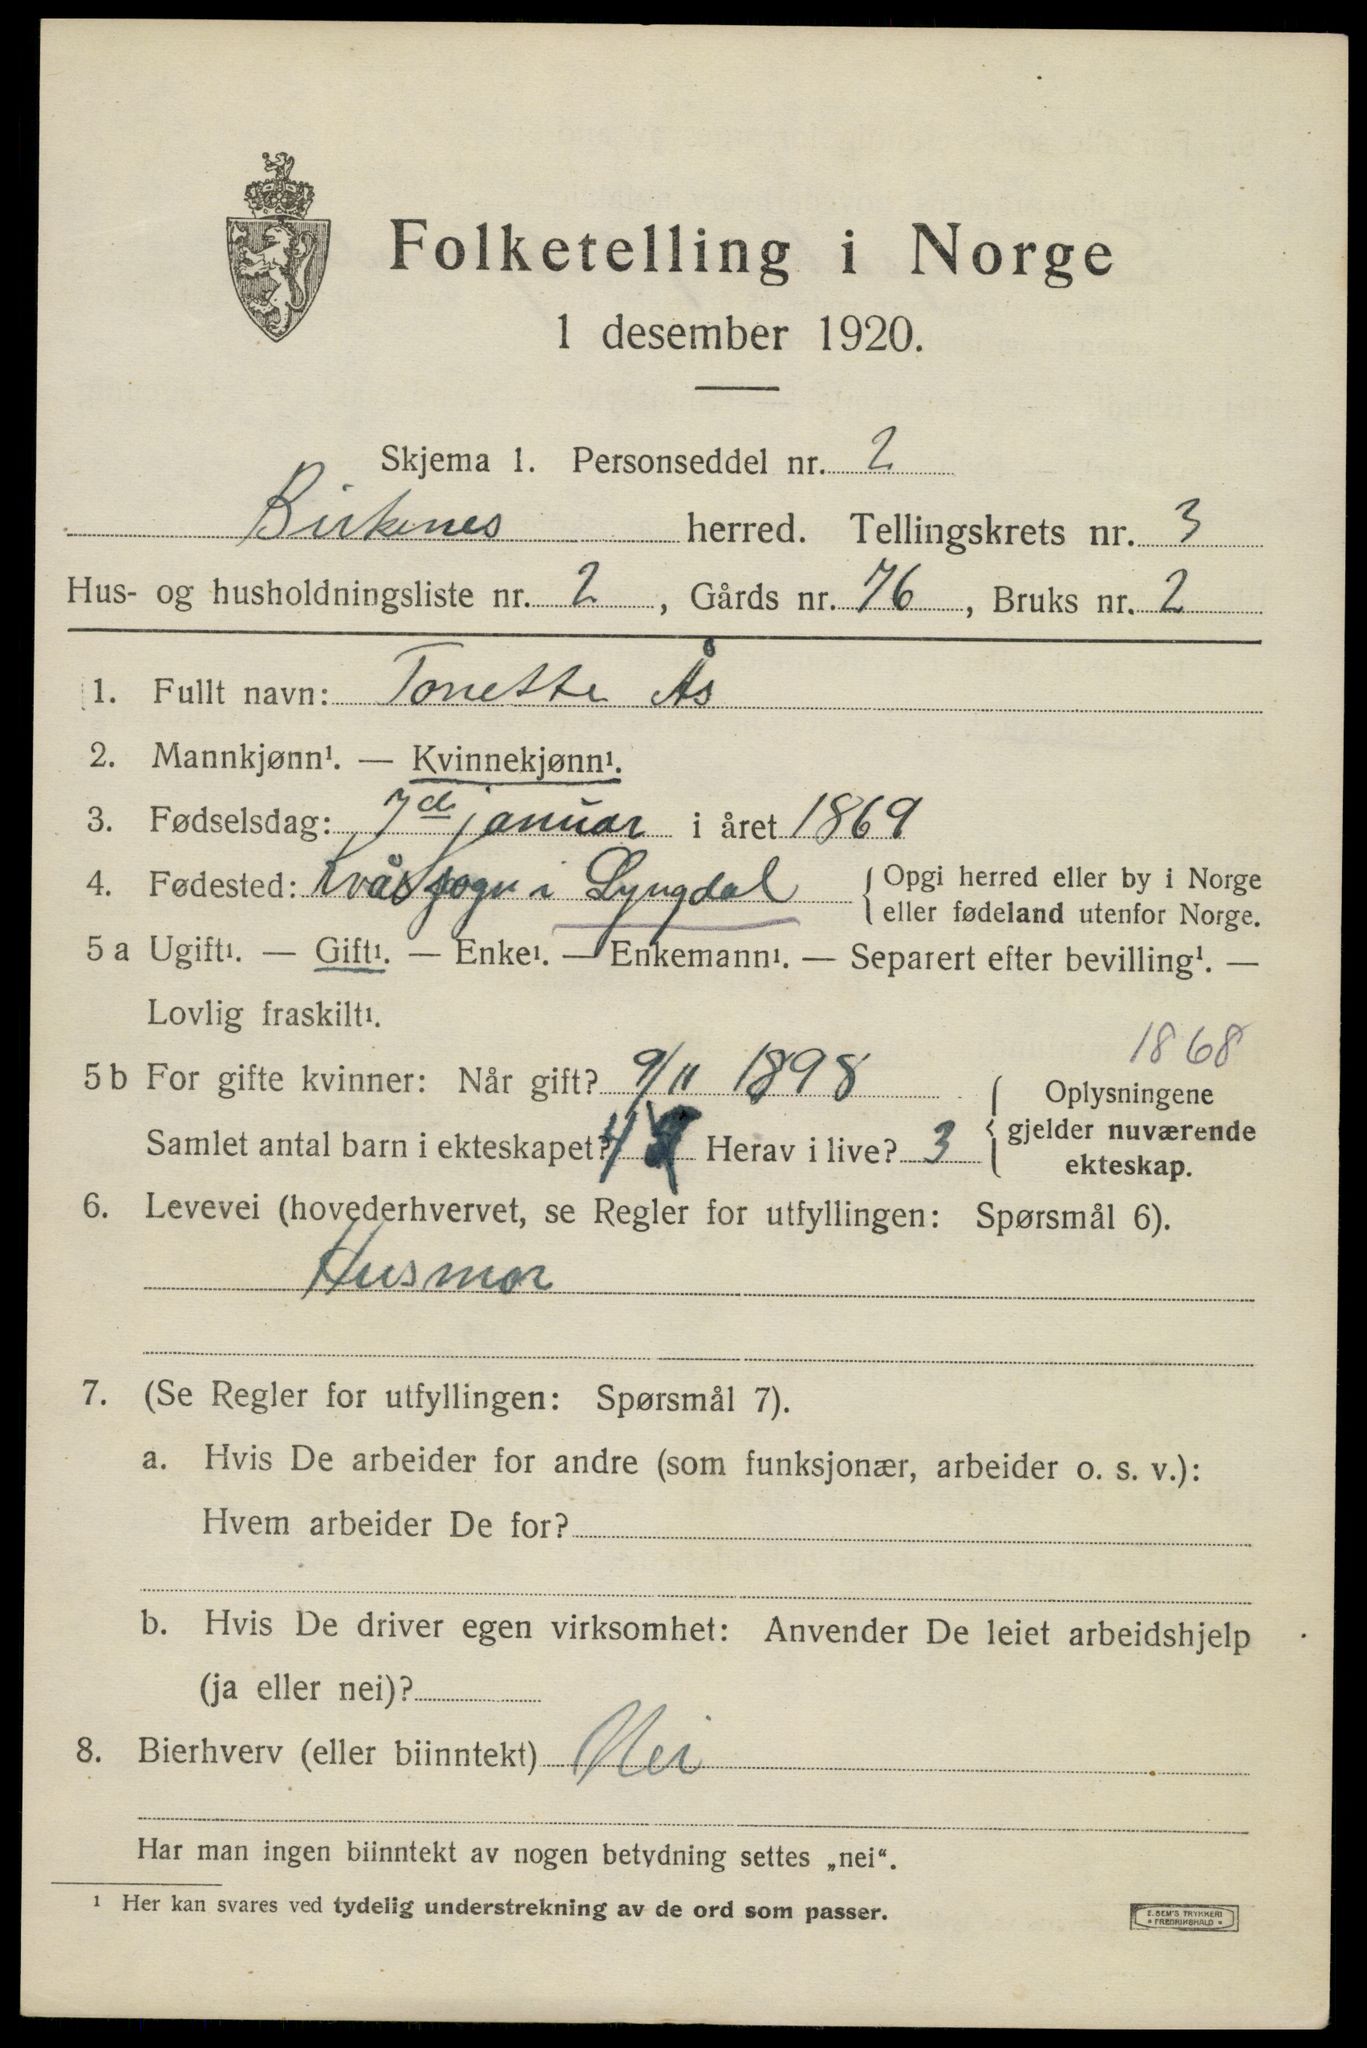 Folketelling i Norge
1 desember 1920.
Skjema 1. Personseddel nr. 2
Birkenes herred. Tellingskrets nr. 3
Hus- og husholdningsliste nr. 2, Gårds nr. 76, Bruks nr. 2
1. Fullt navn: Tonette Ås
2. Mannkjønn¹. — Kvinnekjønn¹.
3. Fødselsdag: 7de januar i året 1869
4. Fødested: Kvås sogn i Lyngdal { Opgi herred eller by i Norge
eller fødeland utenfor Norge.
5 a Ugift¹. — Gift¹. — Enke¹. — Enkemann¹. — Separert efter bevilling¹. —
Lovlig fraskilt¹.
1868
5 b For gifte kvinner: Når gift? 9/11 1898
Samlet antal barn i ekteskapet? 4 Herav i live? 3
Oplysningene
gjelder nuværende
ekteskap.
6. Levevei (hovederhvervet, se Regler for utfyllingen: Spørsmål 6).
Husmor
7. (Se Regler for utfyllingen: Spørsmål 7).
a. Hvis De arbeider for andre (som funksjonær, arbeider o. s. v.):
Hvem arbeider De for?
b. Hvis De driver egen virksomhet: Anvender De leiet arbeidshjelp
(ja eller nei)?
8. Bierhverv (eller biinntekt) Nei
Har man ingen biinntekt av nogen betydning settes „nei“.
¹ Her kan svares ved tydelig understrekning av de ord som passer.
E. SEM'S TRYKKERI
• FREDRIKSHALD •